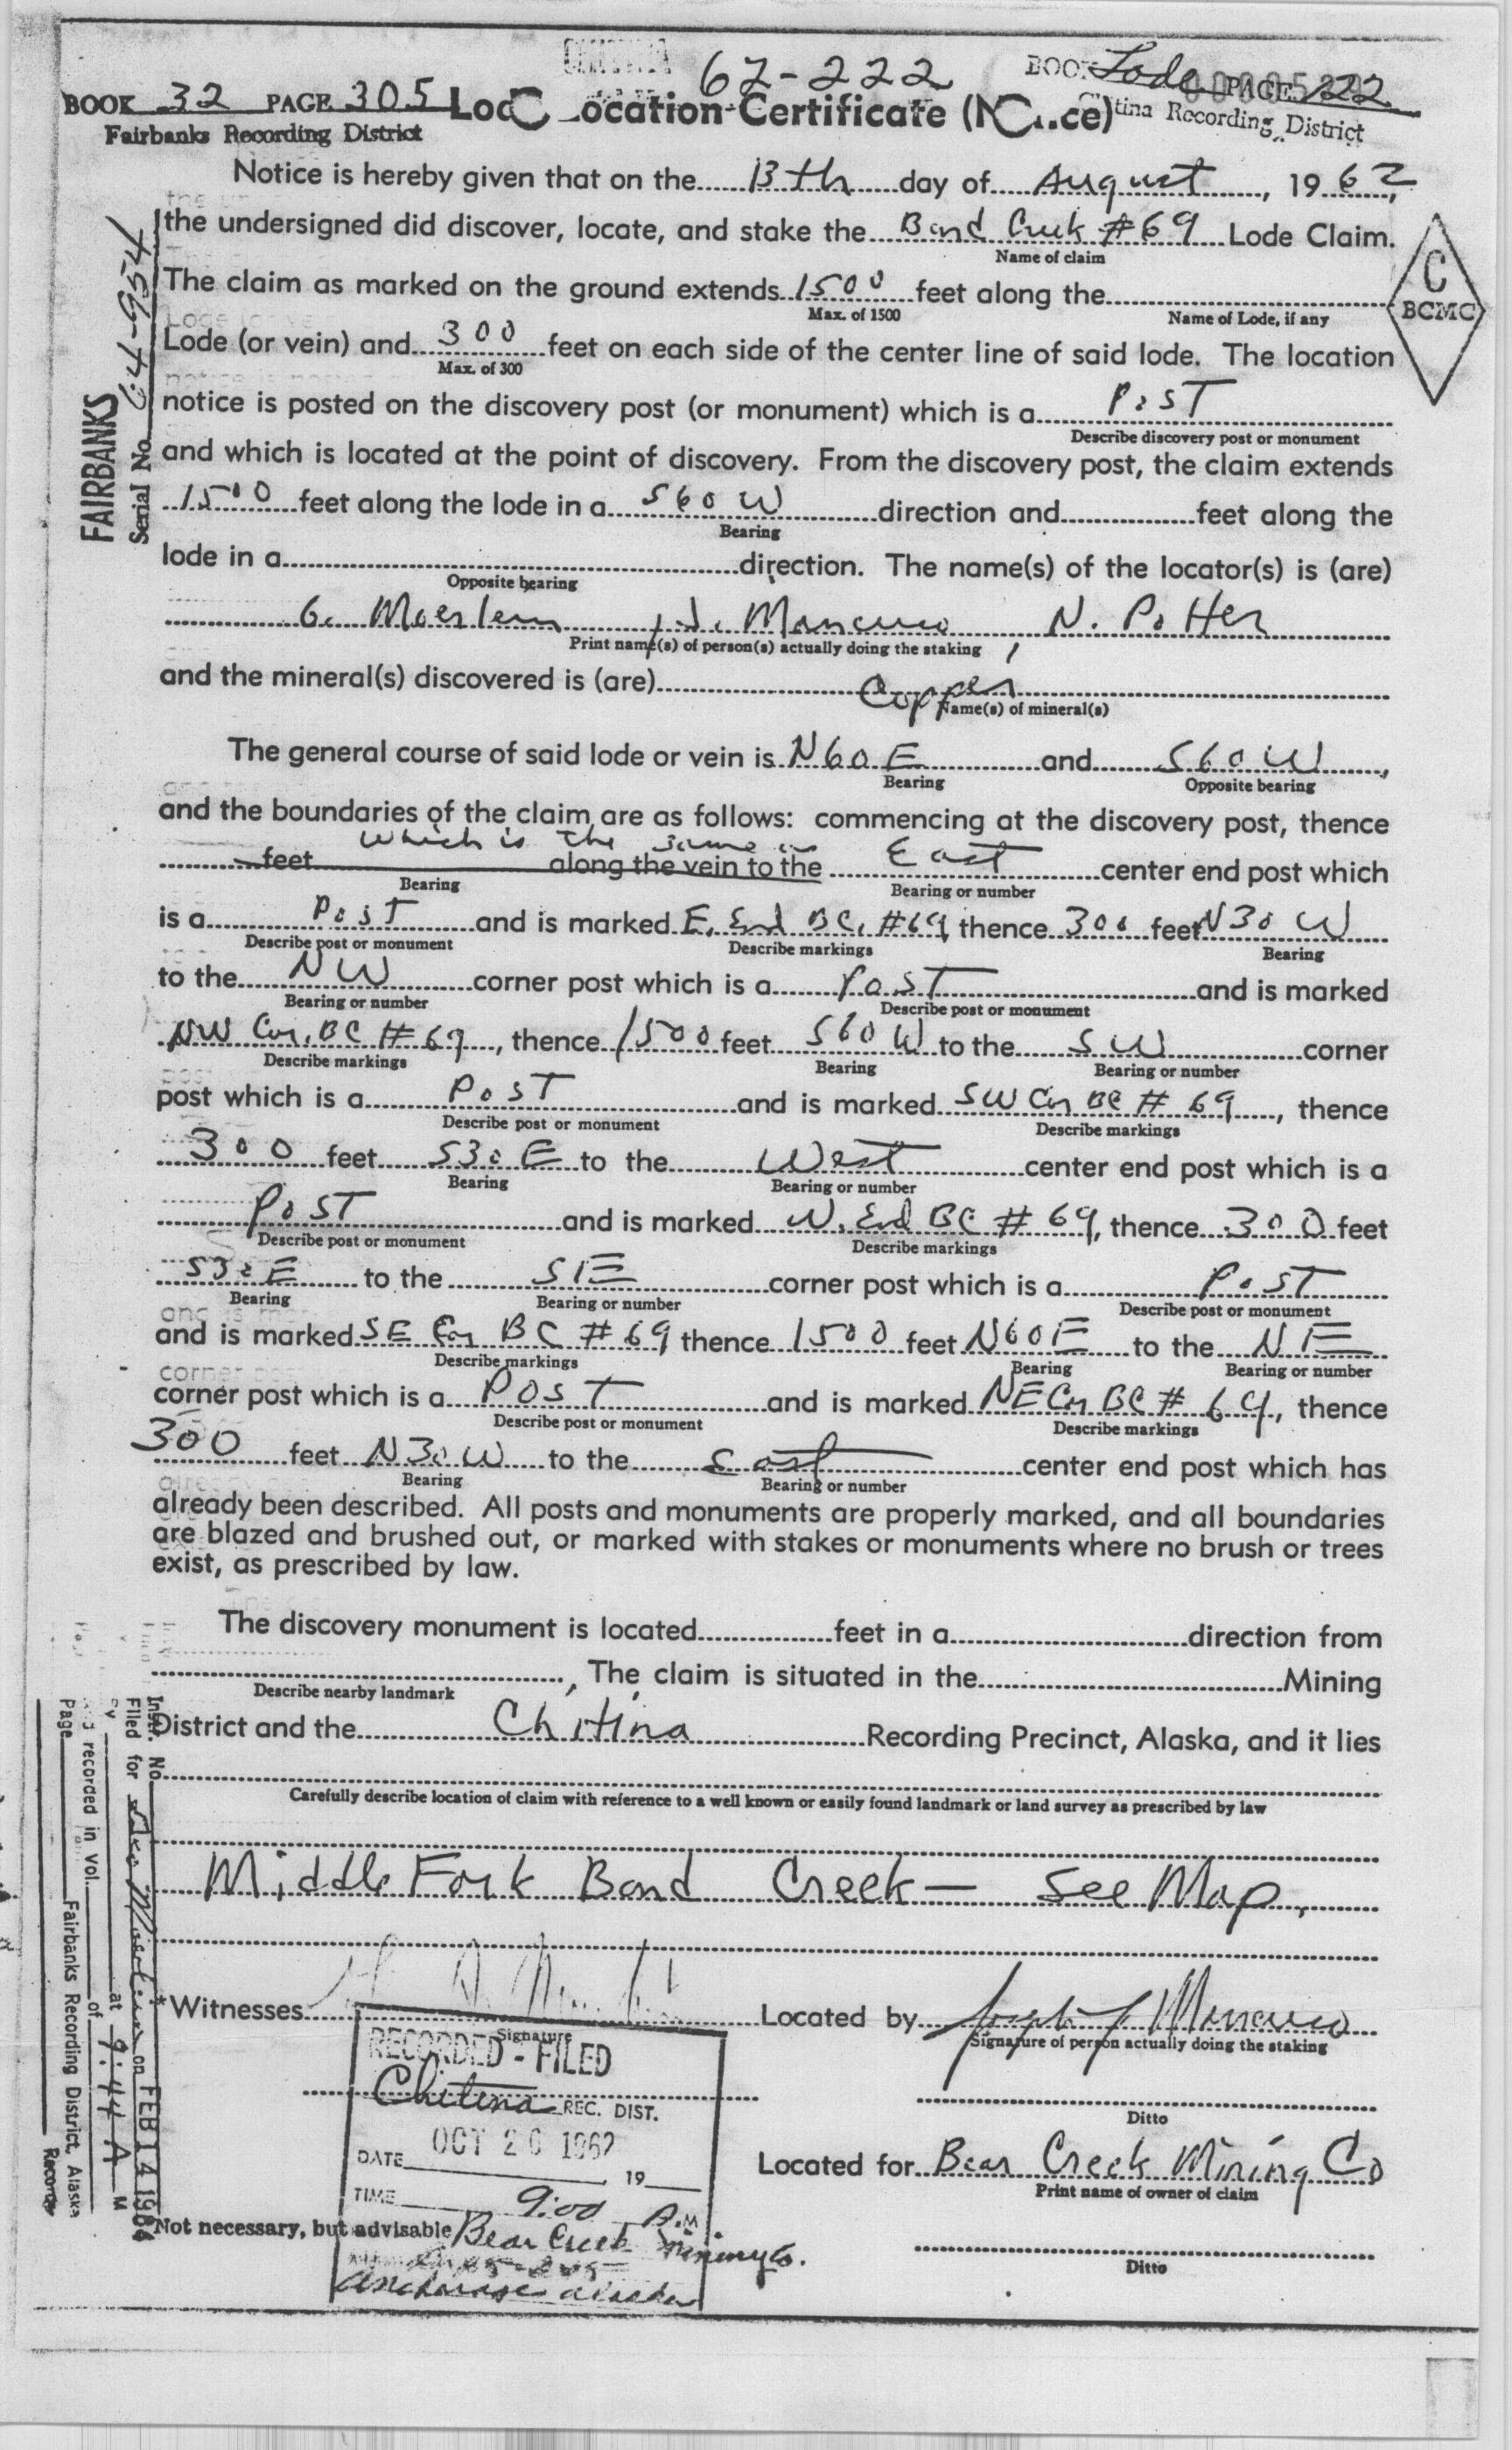 62-222
BOOK Lode PAGE 222
BOOK 32 PAGE 305 Location Certificate
Fairbanks Recording District
Recording District
Notice is hereby given that on the 13th day of August, 1962,
the undersigned did discover, locate, and stake the Bond Creek #69 Lode Claim.
Name of claim
C
BCMC
The claim as marked on the ground extends 1500 feet along the
Max. of 1500 Name of Lode, if any
Lode (or vein) and 300 feet on each side of the center line of said lode. The location
Max. of 300
notice is posted on the discovery post (or monument) which is a Post
Describe discovery post or monument
FAIRBANKS
Serial No. 64-954
and which is located at the point of discovery. From the discovery post, the claim extends
1500 feet along the lode in a S60W direction and feet along the
Bearing
lode in a direction. The name(s) of the locator(s) is (are)
Opposite bearing
G. Moerlein, J. Mancuso, N. Potter
Print name(s) of person(s) actually doing the staking
and the mineral(s) discovered is (are) Copper
Name(s) of mineral(s)
The general course of said lode or vein is N60E and S60W,
Bearing Opposite bearing
and the boundaries of the claim are as follows: commencing at the discovery post, thence
which is the same as
feet along the vein to the East center end post which
Bearing Bearing or number
is a Post and is marked E. End BC. #69, thence 300 feet N30W
Describe post or monument Describe markings Bearing
to the NW corner post which is a Post and is marked
Bearing or number Describe post or monument
NW Cor. BC #69, thence 1500 feet S60W to the SW corner
Describe markings Bearing Bearing or number
post which is a Post and is marked SW Cor BC #69, thence
Describe post or monument Describe markings
300 feet S30E to the West center end post which is a
Bearing Bearing or number
Post and is marked W. End BC #69, thence 300 feet
Describe post or monument Describe markings
S30E to the SE corner post which is a Post
Bearing Bearing or number Describe post or monument
and is marked SE Cor BC #69 thence 1500 feet N60E to the NE
Describe markings Bearing Bearing or number
corner post which is a Post and is marked NE Cor BC #69, thence
Describe post or monument Describe markings
300 feet N30W to the East center end post which has
Bearing Bearing or number
already been described. All posts and monuments are properly marked, and all boundaries
are blazed and brushed out, or marked with stakes or monuments where no brush or trees
exist, as prescribed by law.
The discovery monument is located feet in a direction from
, The claim is situated in the Mining
Describe nearby landmark
District and the Chitina Recording Precinct, Alaska, and it lies
Carefully describe location of claim with reference to a well known or easily found landmark or land survey as prescribed by law
Middle Fork Bond Creek - See Map.
Inst. No.
Filed for on FEB 14 1964
at 9:44 A M
recorded in Vol. of
Page Fairbanks Recording District, Alaska
Recorder
*Witnesses Located by Joseph J Mancuso
Signature Signature of person actually doing the staking
RECORDED - FILED
Chitina REC. DIST.
Ditto
DATE OCT 26 1962 19
Located for Bear Creek Mining Co
Print name of owner of claim
TIME 9:00 A.M
Not necessary, but advisable
Bear Creek Mining Co.
Anchorage Alaska
Ditto